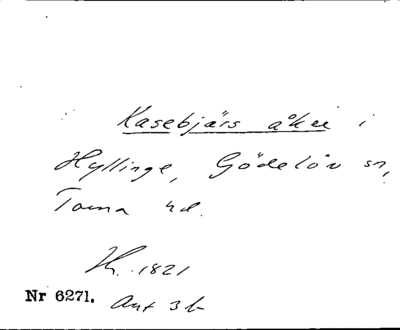 Kasebjärs åker i
Hyllinge, Gödelöv sn,
Torna hd.
Hr. 1821
Nr 6271. Ant 3 b